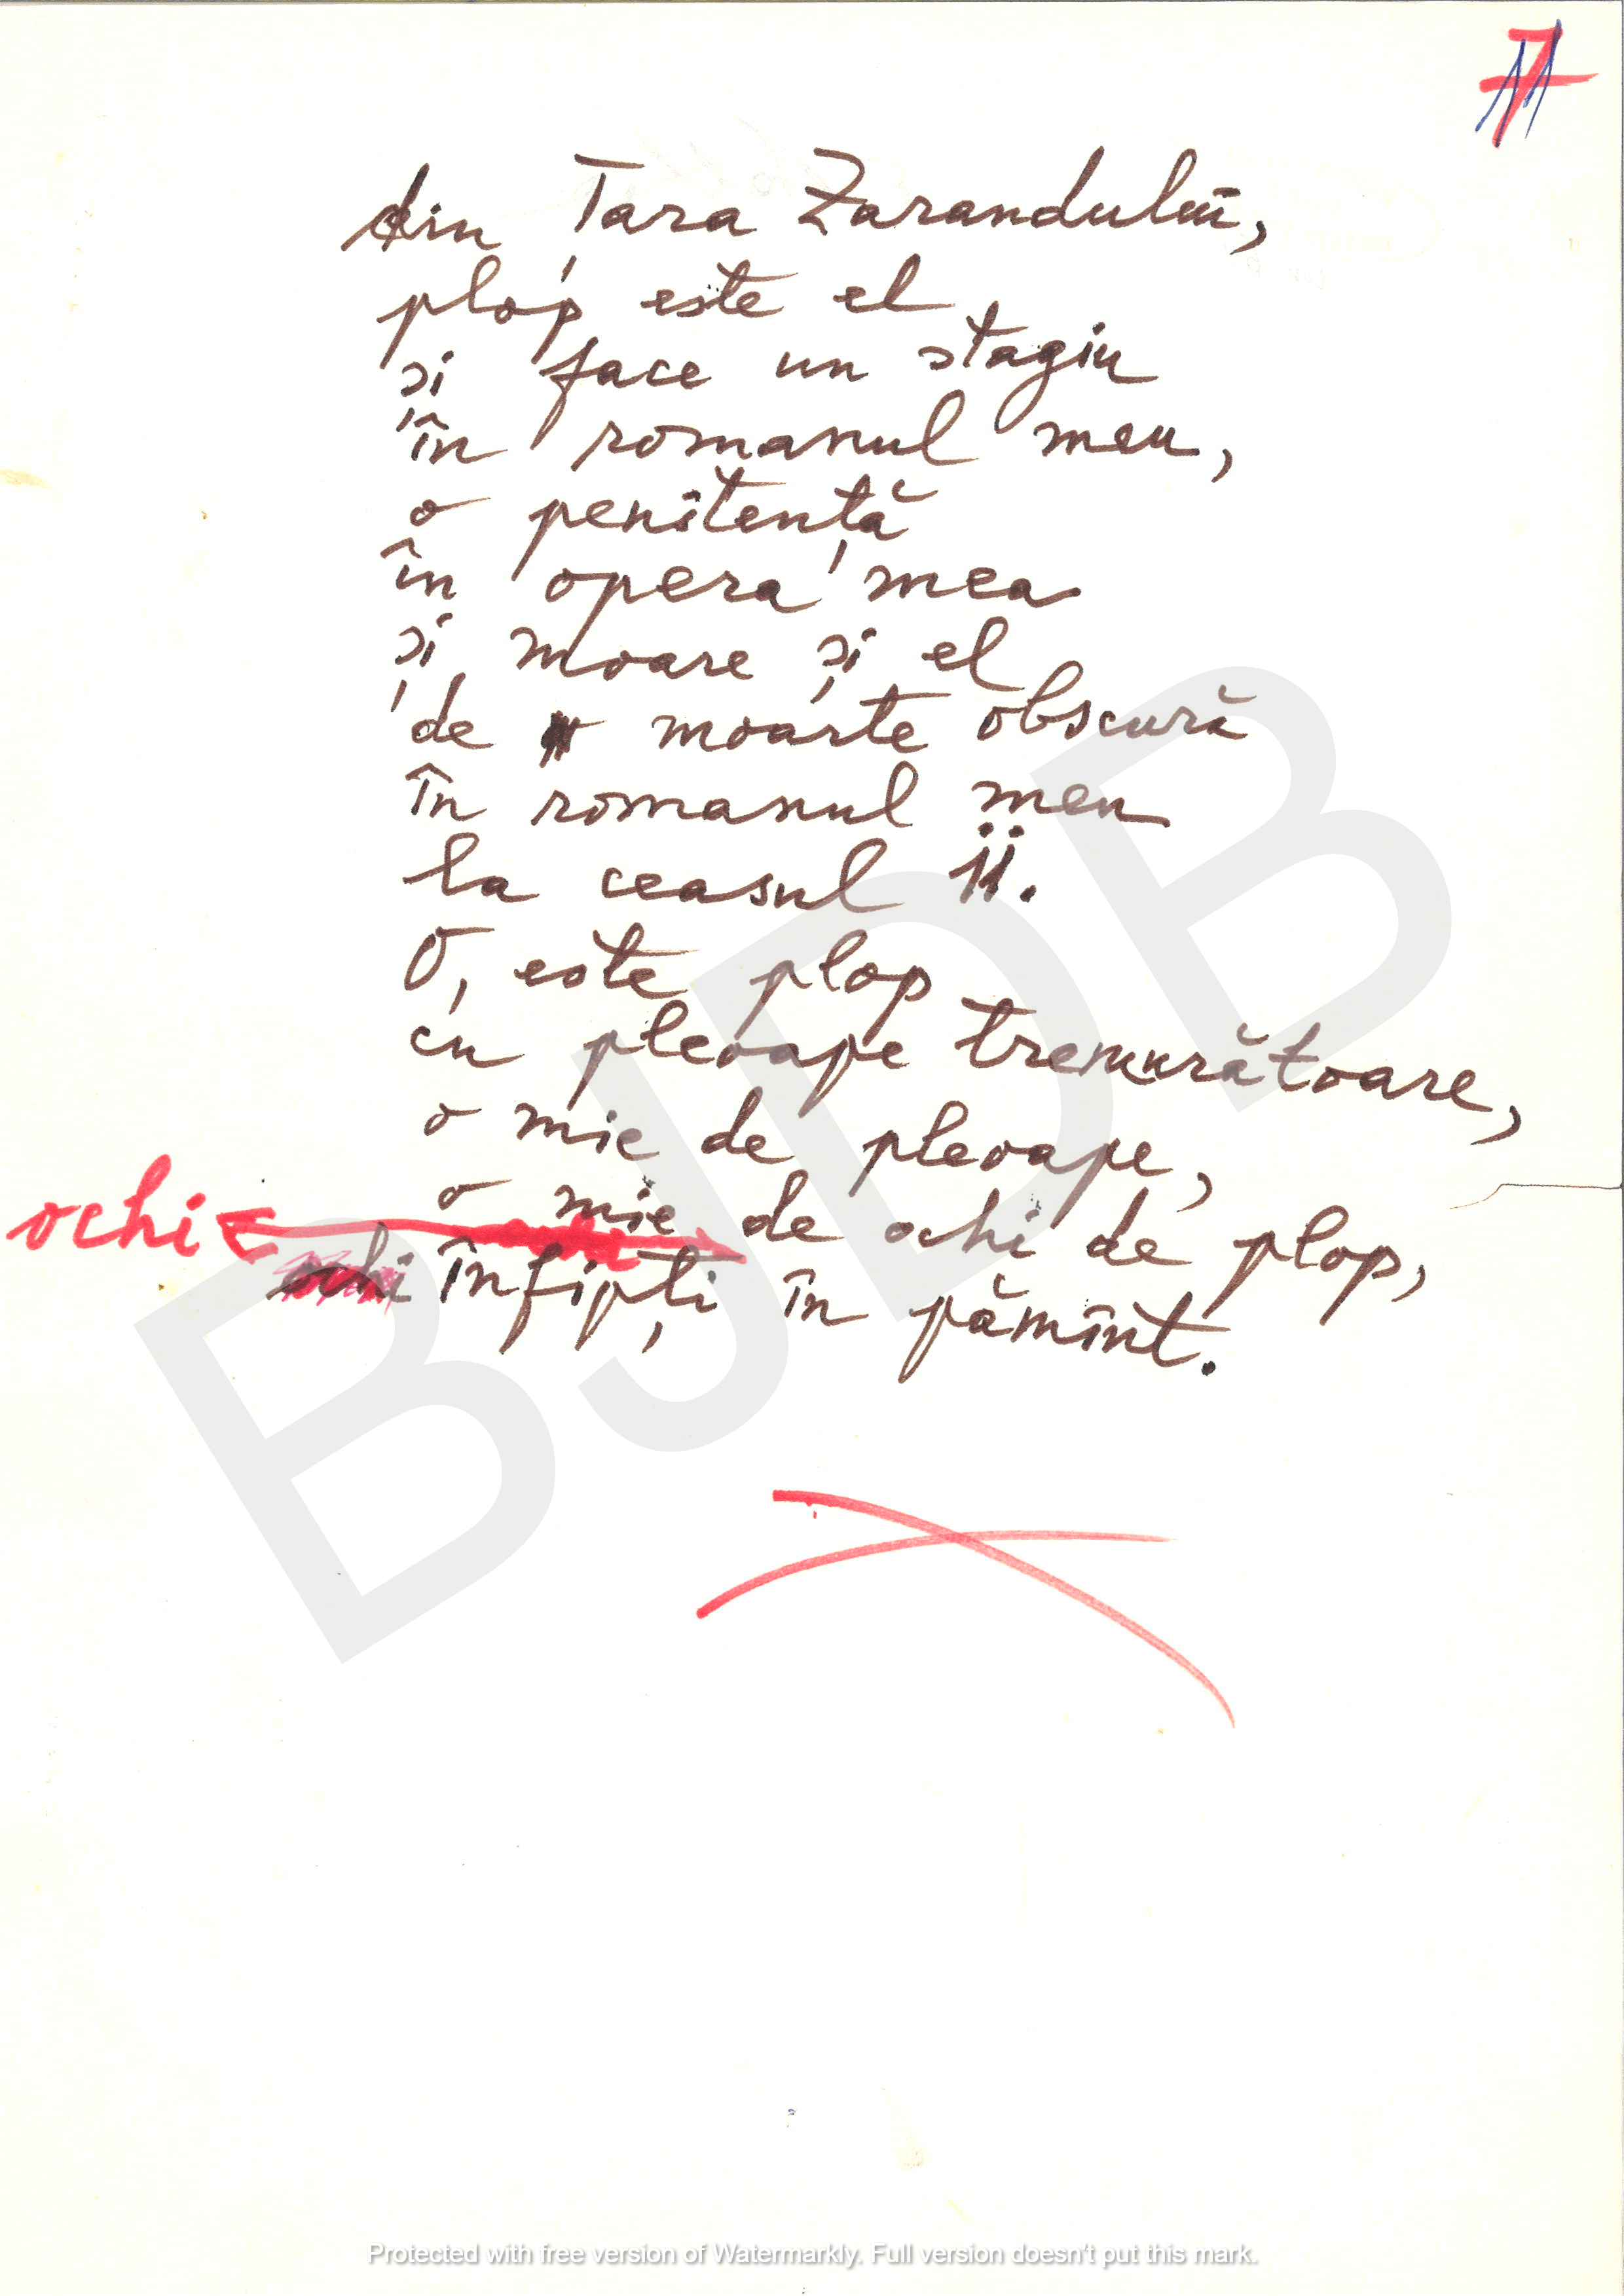 11
din Țara Zarandului,
plop este el
și face un stagiu
în romanul meu,
o penitență
în opera mea
și moare și el
de moarte obscură
în romanul meu
la ceasul ii.
O, este plop
cu pleoape tremurătoare,
o mie de pleoape,
o mie de ochi de plop,
ochi
ochi înfipți în pămînt.
BJDB
Protected with free version of Watermarkly. Full version doesn't put this mark.